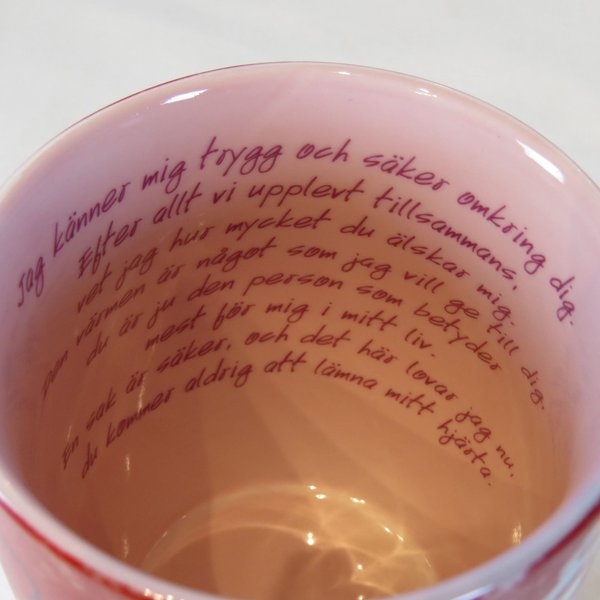 Jag känner mig trygg och säker omkring dig.
Efter allt vi upplevt tillsammans,
vet jag hur mycket du älskar mig.
Den värmen är något som jag vill ge till dig.
du är ju den person som betyder
mest för mig i mitt liv.
En sak är säker, och det här lovar jag nu,
du kommer aldrig att lämna mitt hjärta.